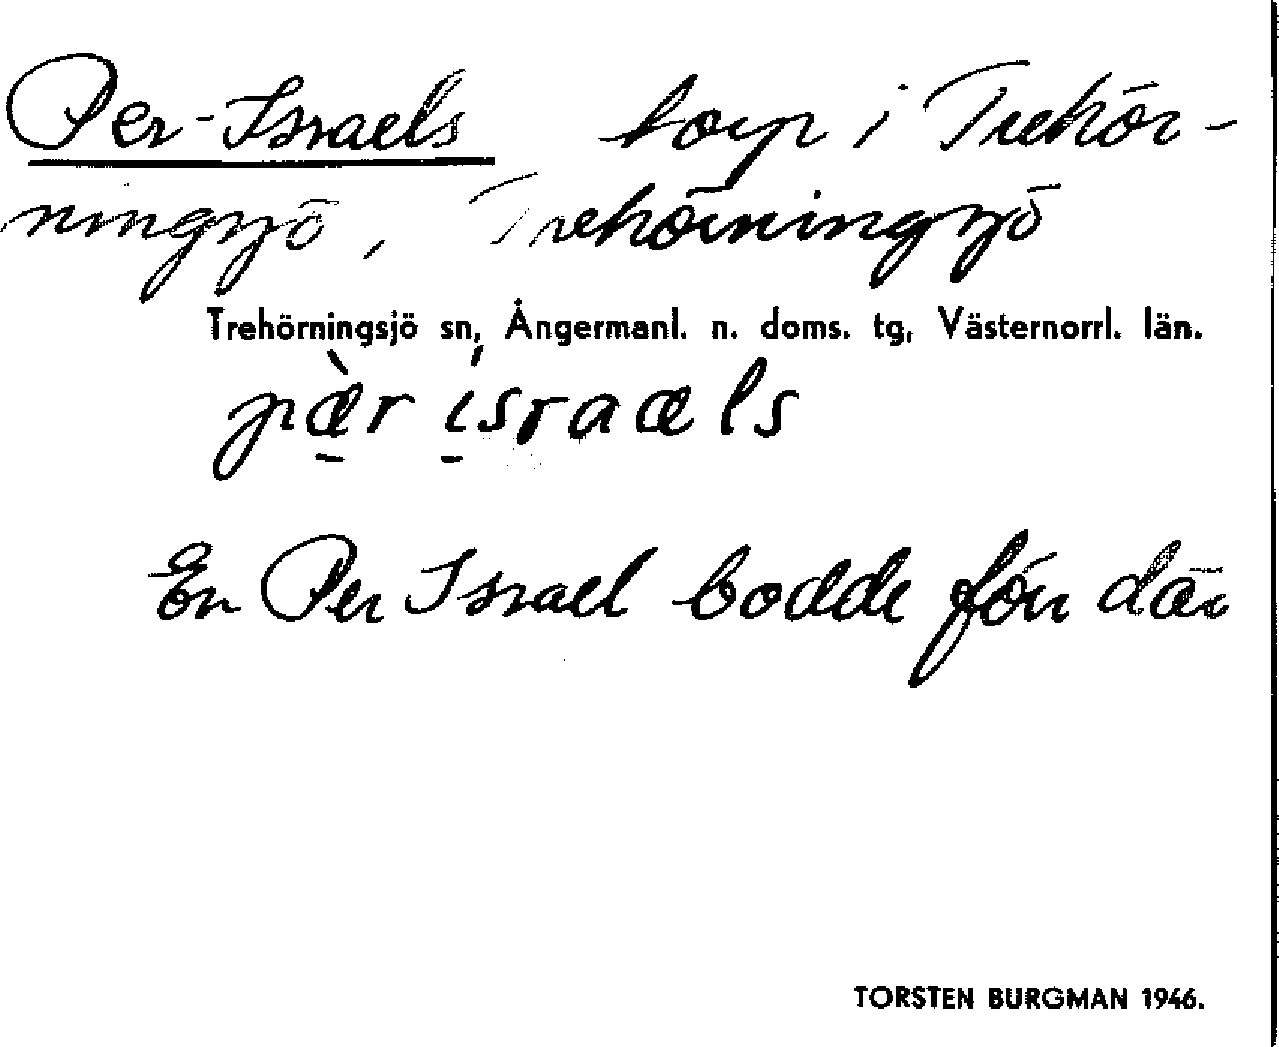 Per-Israels torp i Trehör-
ningsjö, Trehörningsjö
Trehörningsjö sn, Ångermanl. n. doms. tg, Västernorrl. län.
pæ̀r ísraæls
En Per Israel bodde förr där
TORSTEN BURGMAN 1946.